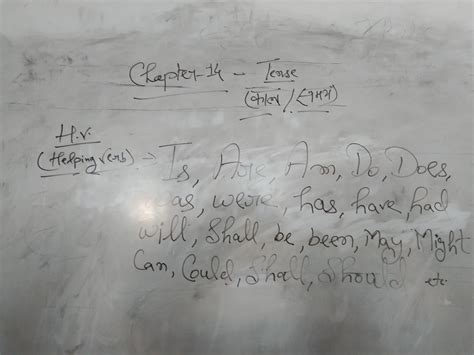 Chapter-14 - Tense
(काल/समय)
H.V.
(Helping Verb) → Is, Are, Am, Do, Does,
was, were, has, have, had
will, Shall, be, been, May, Might
Can, Could, Shall, Should etc.